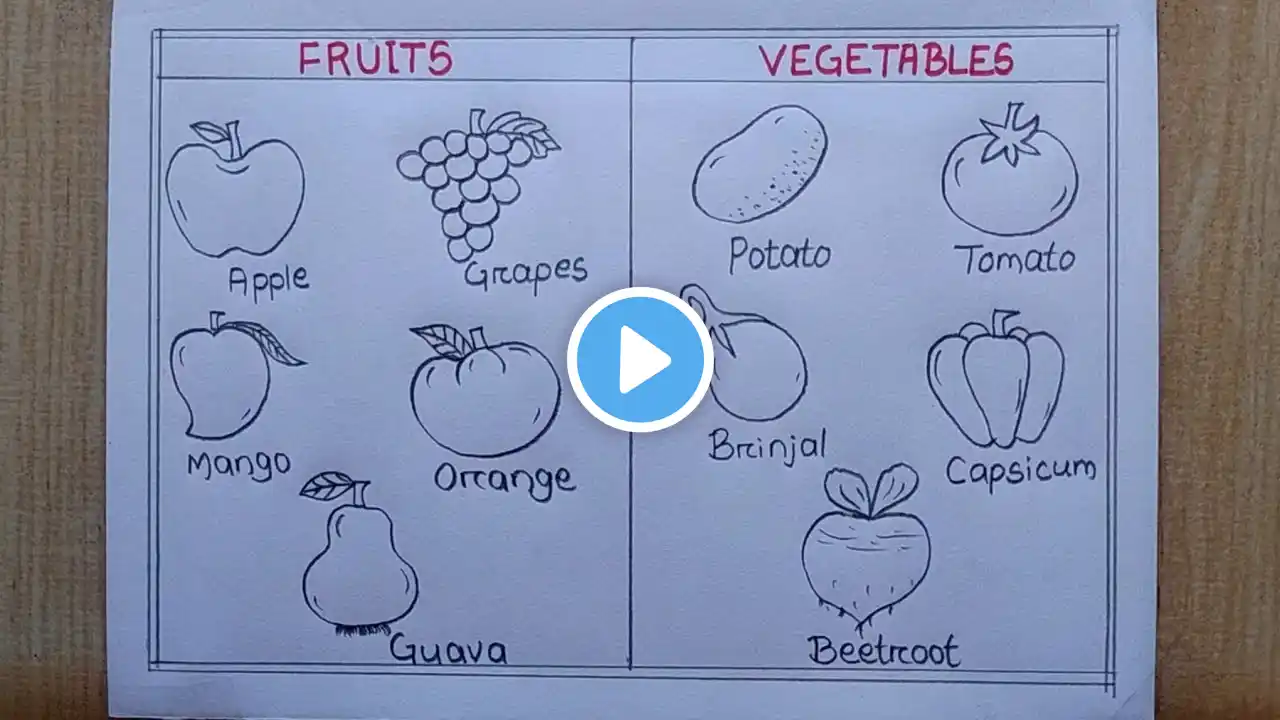 FRUITS
VEGETABLES
Apple
Grapes
Potato
Tomato
Mango
Orange
Brinjal
Capsicum
Guava
Beetroot